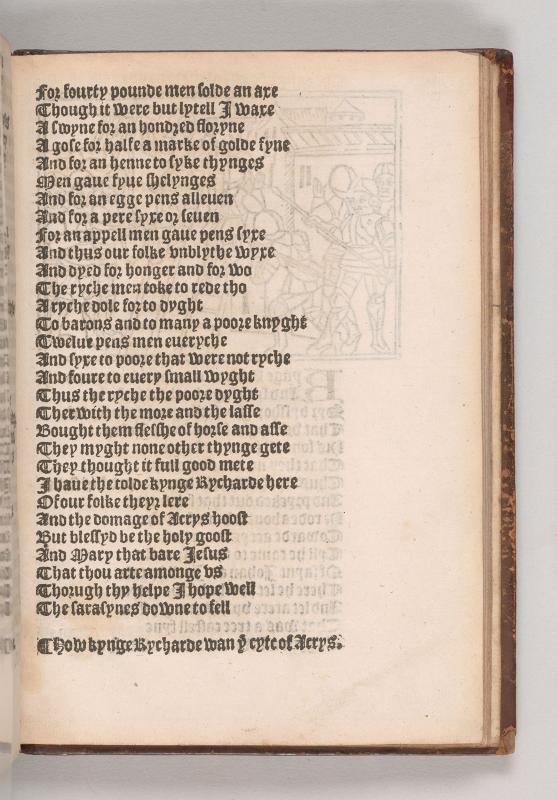 For fourty pounde men solde an axe
Though it were but lytell I waxe
A swyne for an hondred floryne
A gose for halfe a marke of golde fyne
And for an henne to syke thynges
Men gaue fyue shelynges
And for an egge pens alleuen
And for a pere syxe or seuen
For an appell men gaue pens syxe
And thus our folke vnblythe wyxe
And dyed for honger and for wo
The ryche men toke to rede tho
A ryche dole for to dyght
To barons and to many a poore knyght
Twelue pens men eueryche
And syxe to poore that were not ryche
And foure to euery small wyght
Thus the ryche the poore dyght
Therwith the more and the lasse
Bought them flesshe of horse and asse
They myght none other thynge gete
They thought it full good mete
I haue the tolde kynge Rycharde here
Of our folke theyr lere
And the domage of Acrys hoost
But blessyd be the holy goost
And Mary that bare Jesus
That thou arte amonge vs
Thorugh thy helpe I hope well
The sarasynes downe to fell
¶How kynge Rycharde wan yͤ cyte of Acrys.